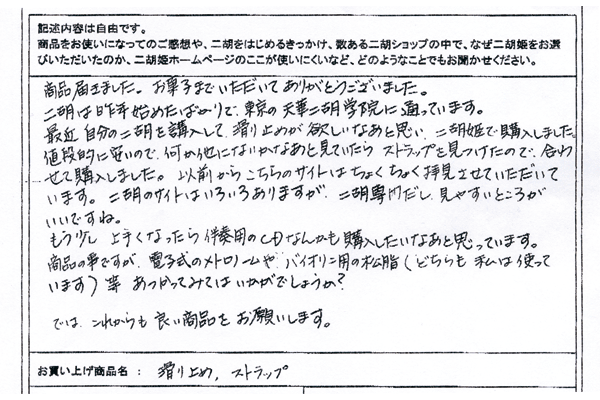 記述内容は自由です。
商品をお使いになってのご感想や、二胡をはじめるきっかけ、数ある二胡ショップの中で、なぜ二胡姫をお選
びいただいたのか、二胡姫ホームページのここが使いにくいなど、どのようなことでもお聞かせください。
商品届きました。お菓子までいただいてありがとうございました。
二胡は昨年始めたばかりで、東京の天華二胡学院に通っています。
最近自分の二胡を購入して、滑り止めが欲しいなあと思い、二胡姫で購入しました。
値段的に安いので、何か他にないかなあと見ていたらストラップを見つけたので、合わ
せて購入しました。以前からこちらのサイトはちょくちょく拝見させていただいて
います。二胡のサイトはいろいろありますが、二胡専門だし、見やすいところが
いいですね。
もう少し上手くなったら伴奏用のCDなんかも購入したいなあと思っています。
商品の事ですが、電子式のメトロノームや、バイオリン用の松脂(どちらも私は使って
います)等あつかってみてはいかがでしょうか?
では、これからも良い商品をお願いします。
お買い上げ商品名: 滑り止め, ストラップ